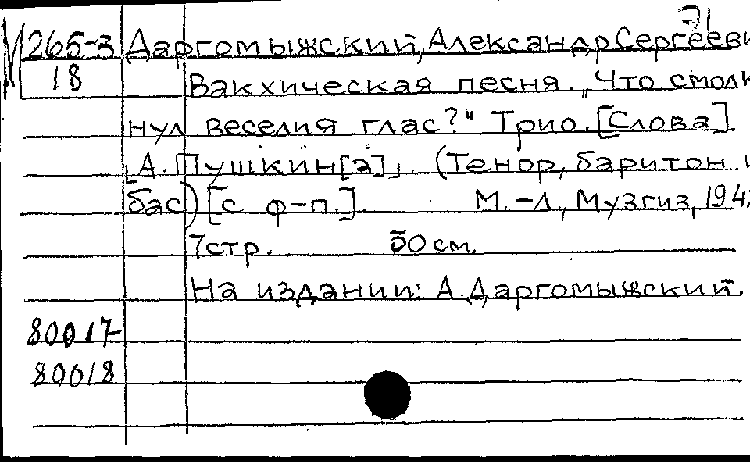 21
М 265-3 Даргомыжский, Александр Сергееви
18 Вакхическая песня. „Что смолк
нул веселия глас?" Трио. [Слова]
[А. Пушкин[а]]. (Тенор, баритон и
бас) [с ф-п.]. М.-Л., Музгиз, 194
7стр. 50 см.
На издании: А. Даргомыжский.
80017
80018